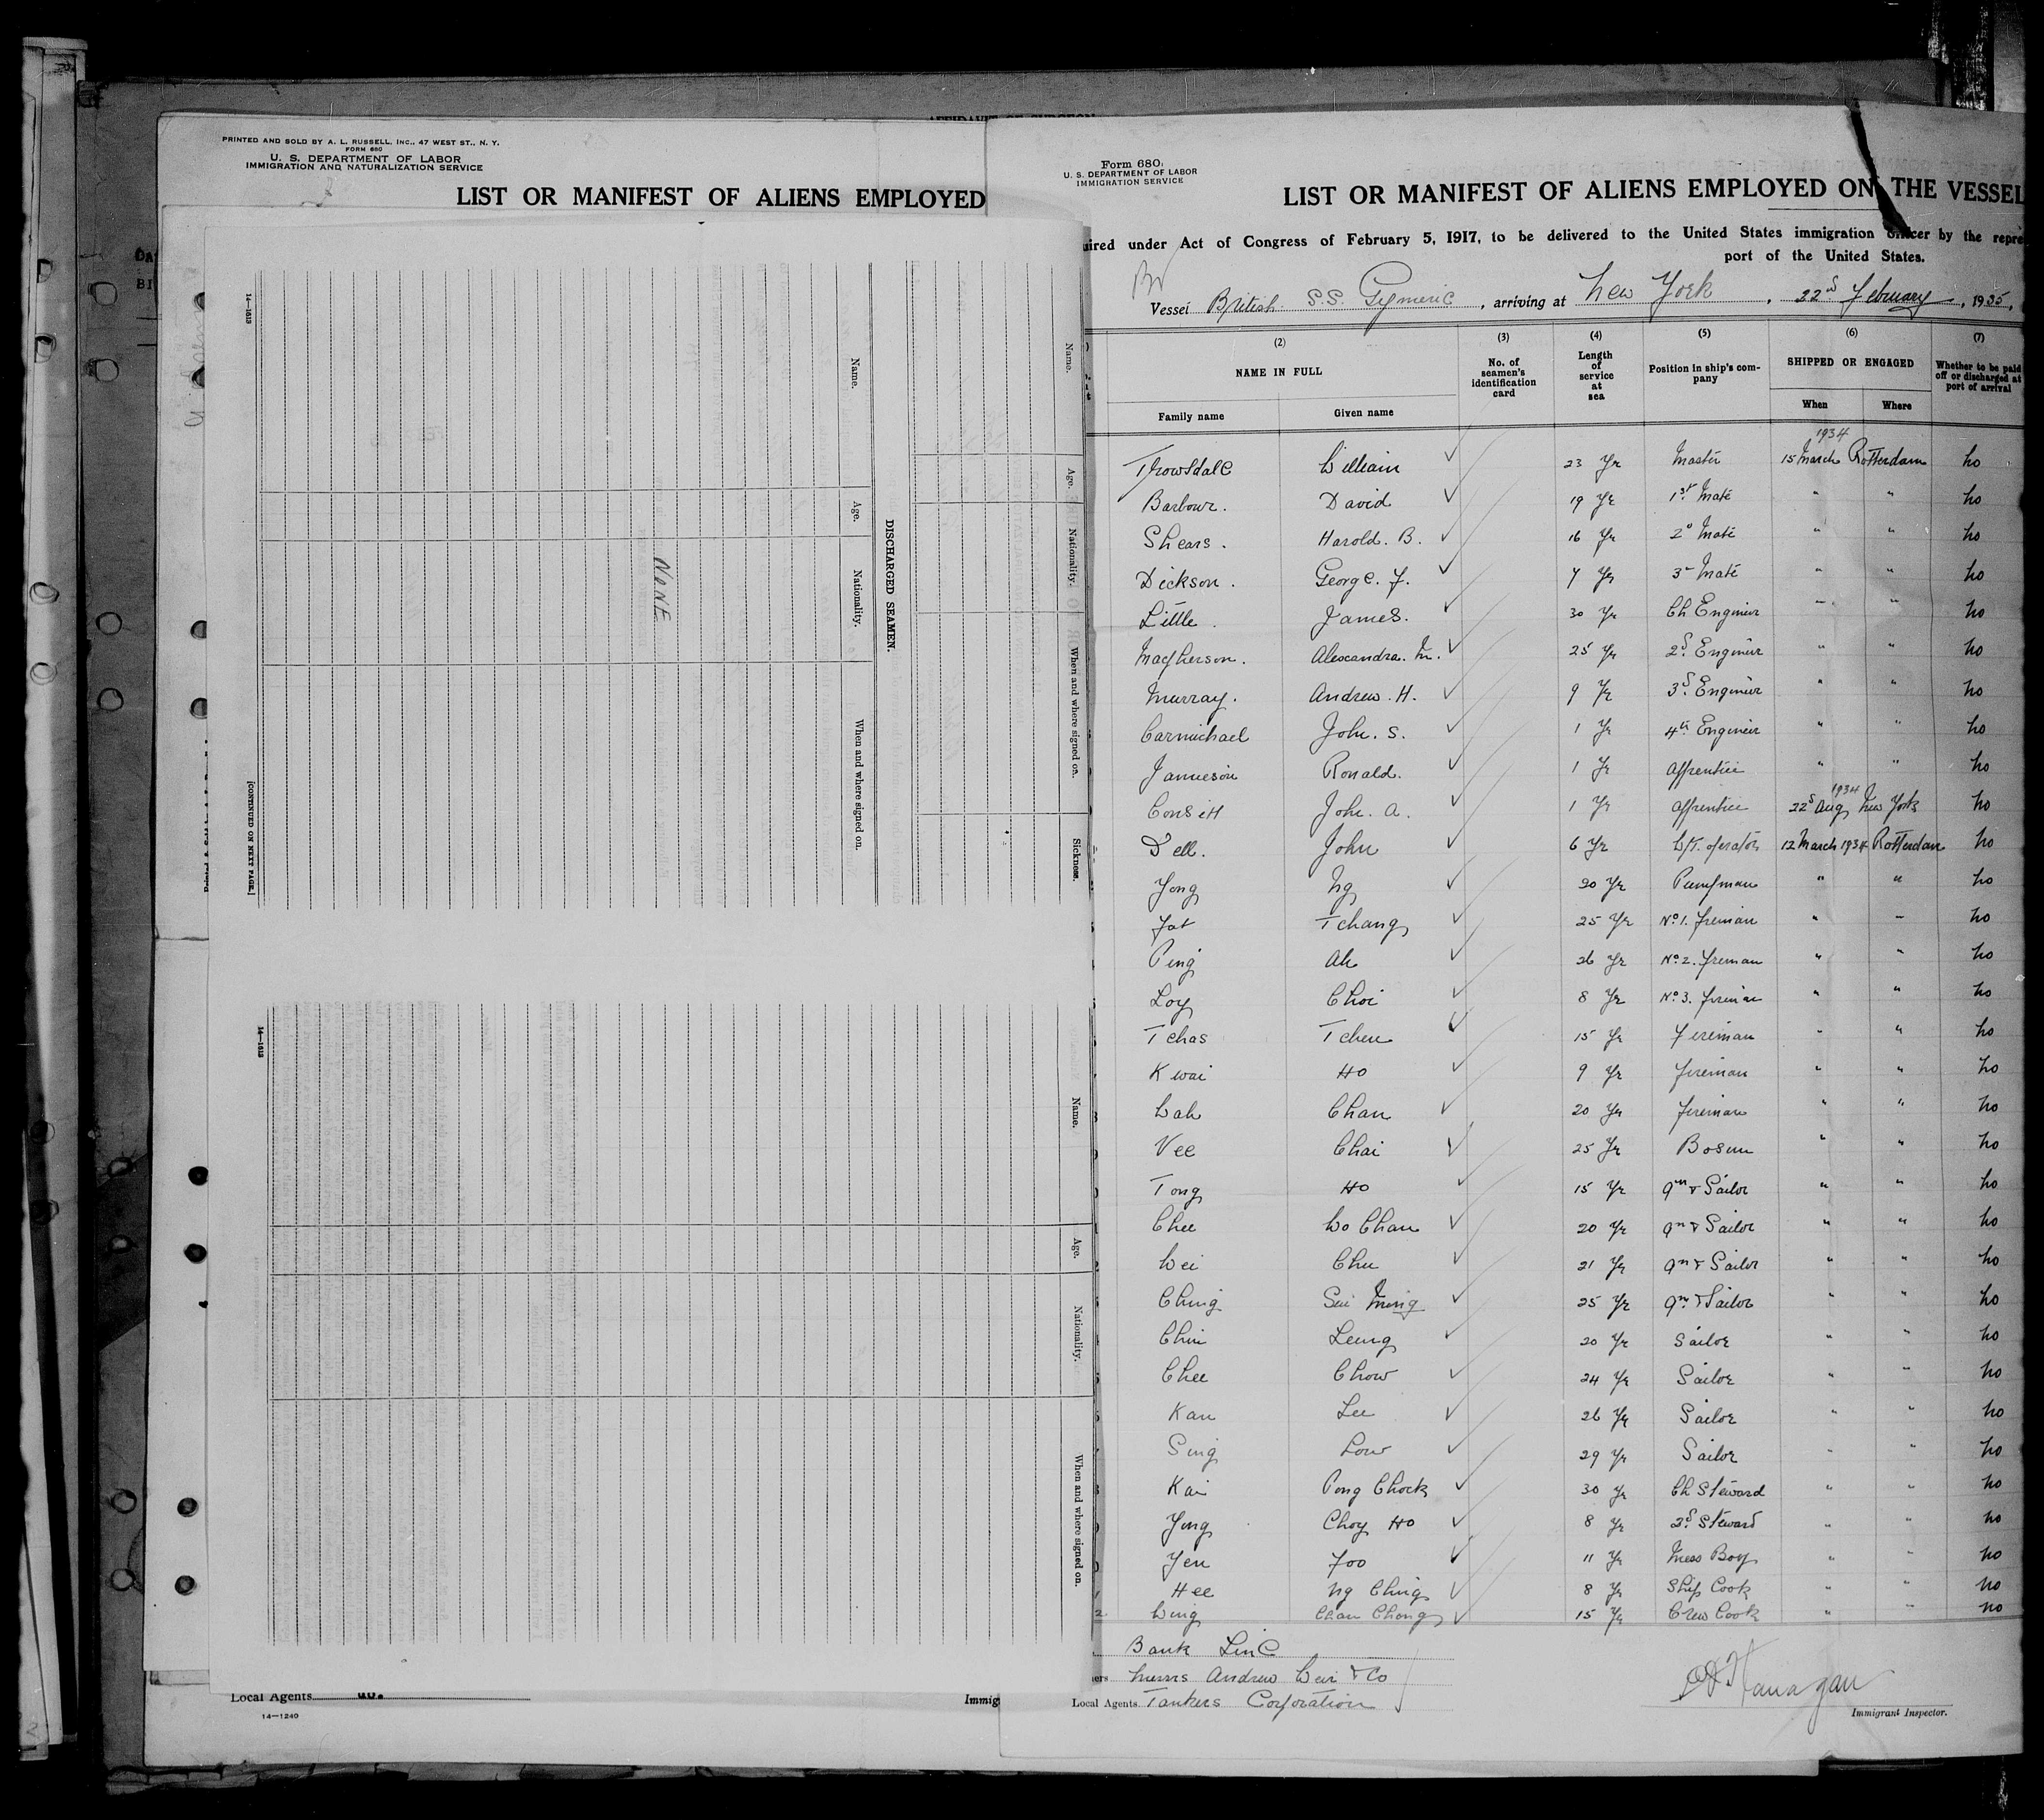 PRINTED AND SOLD BY A. L. RUSSELL, INC., 47 WEST ST., N. Y.
FORM 680
U. S. DEPARTMENT OF LABOR
IMMIGRATION AND NATURALIZATION SERVICE
LIST OR MANIFEST OF ALIENS EMPLOYED
14—1613
Name.
Age.
Nationality.
When and where signed on.
Sickness.
DISCHARGED SEAMEN.
Name.
Age.
Nationality.
When and where signed on.
NONE
[CONTINUED ON NEXT PAGE.]
14—1613
Name.
Age.
Nationality.
When and where signed on.
Local Agents
14—1240
Immig
Form 680
U. S. DEPARTMENT OF LABOR
IMMIGRATION SERVICE
LIST OR MANIFEST OF ALIENS EMPLOYED ON THE VESSEL
uired under Act of Congress of February 5, 1917, to be delivered to the United States immigration officer by the repre
port of the United States.
Br
Vessel British S.S. Gymeric, arriving at New York, 22d February, 1935,
(2) (3) (4) (5) (6) (7)
NAME IN FULL No. of seamen's identification card Length of service at sea Position in ship's company SHIPPED OR ENGAGED Whether to be paid off or discharged at port of arrival
Family name Given name When Where
1934
Trowsdale William 23 Yr Master 15 March Rotterdam No
Barbour. David 19 Yr 1st Mate " " No
Shears. Harold. B. 16 Yr 2d Mate " " No
Dickson. George. F. 7 Yr 3r Mate " " No
Little. James. 30 Yr Ch Engineer " " No
Macpherson. Alexandra. M. 25 Yr 2d Engineer " " No
Murray. Andrew. H. 9 Yr 3d Engineer " " No
Carmichael John. S. 1 Yr 4th Engineer " " No
Jamieson Ronald. 1 Yr Apprentice " " No
1934
Consitt John. A. 1 Yr Apprentice 22d Aug New York No
Dell. John 6 Yr W/T. operator 12 March 1934 Rotterdam No
Yong Ng 20 Yr Pumpman " " No
Fat Tchang 25 Yr No. 1. Fireman " " No
Ping Ah 26 Yr No. 2. Fireman " " No
Loy Choi 8 Yr No. 3. Fireman " " No
Tchas Tchen 15 Yr Fireman " " No
Kwai Ho 9 Yr Fireman " " No
Wah Chan 20 Yr Fireman " " No
Vee Chai 25 Yr Bosun " " No
Tong Ho 15 Yr Qm & Sailor " " No
Chee Wo Chan 20 Yr Qm & Sailor " " No
Wei Chu 21 Yr Qm & Sailor " " No
Ching Sui Ming 25 Yr Qm & Sailor " " No
Chin Leung 20 Yr Sailor " " No
Chee Chow 24 Yr Sailor " " No
Kan Lee 26 Yr Sailor " " No
Sing Low 29 Yr Sailor " " No
Kai Pong Chock 30 Yr Ch Steward " " No
Ying Choy Ho 8 Yr 2d Steward " " No
Yen Foo 11 Yr Mess Boy " " No
Hee Ng Ching 8 Yr Ship Cook " " No
Wing Chan Chong 15 Yr Crew Cook " " No
Bank Line
ers Messrs Andrew Weir & Co
Local Agents Tankers Corporation
Immigrant Inspector.